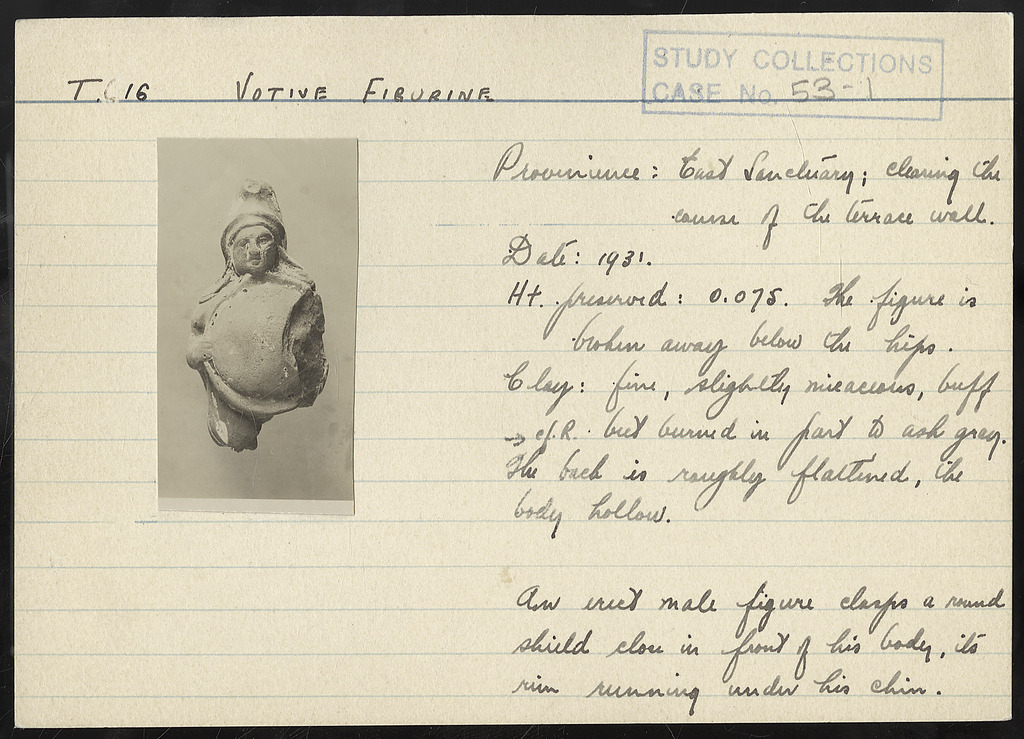 STUDY COLLECTIONS
CASE No. 53-1
T. 16 VOTIVE FIGURINE
Provenience: East Sanctuary; clearing the
course of the terrace wall.
Date: 1931.
Ht. preserved: 0.075. The figure is
broken away below the hips.
Clay: fine, slightly micaceous, buff
→ cf. R. but burned in part to ash gray.
The back is roughly flattened, the
body hollow.
An erect male figure clasps a round
shield close in front of his body, its
rim running under his chin.